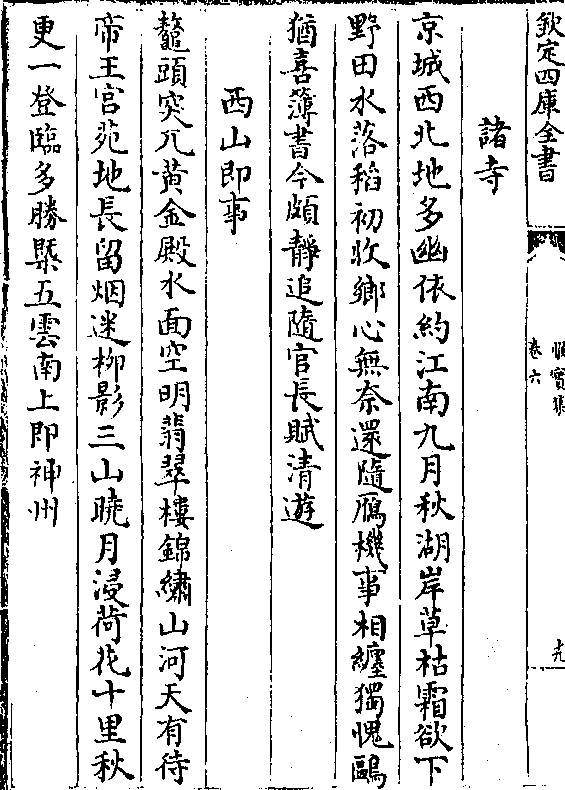 欽定四庫全書
卷六
諸寺
京城西北地多幽依約江南九月秋湖岸草枯霜欲下
野田水落稻初收鄉心無奈還隨鴈機事相纏獨愧鷗
猶喜簿書今頗靜追隨官長賦清遊
西山即事
鼇頭突兀黃金殿水面空明翡翠樓錦繡山河天有待
帝王宫苑地長留烟迷柳影三山曉月浸荷花十里秋
更一登臨多勝槩五雲南上即神州